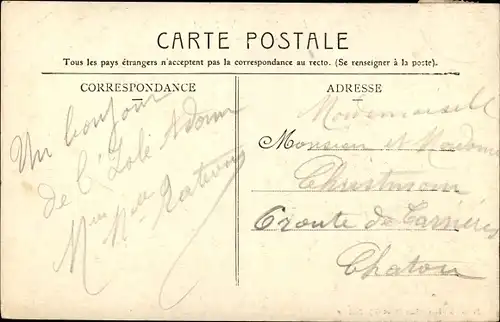 CARTE POSTALE
Tous les pays étrangers n'acceptent pas la correspondance au recto. (Se renseigner à la poste).
CORRESPONDANCE
Un bonjour
de l'
Mme Mlle
ADRESSE
Mademoiselle
Monsieur et Madame
6 route de Carrières
Chatou